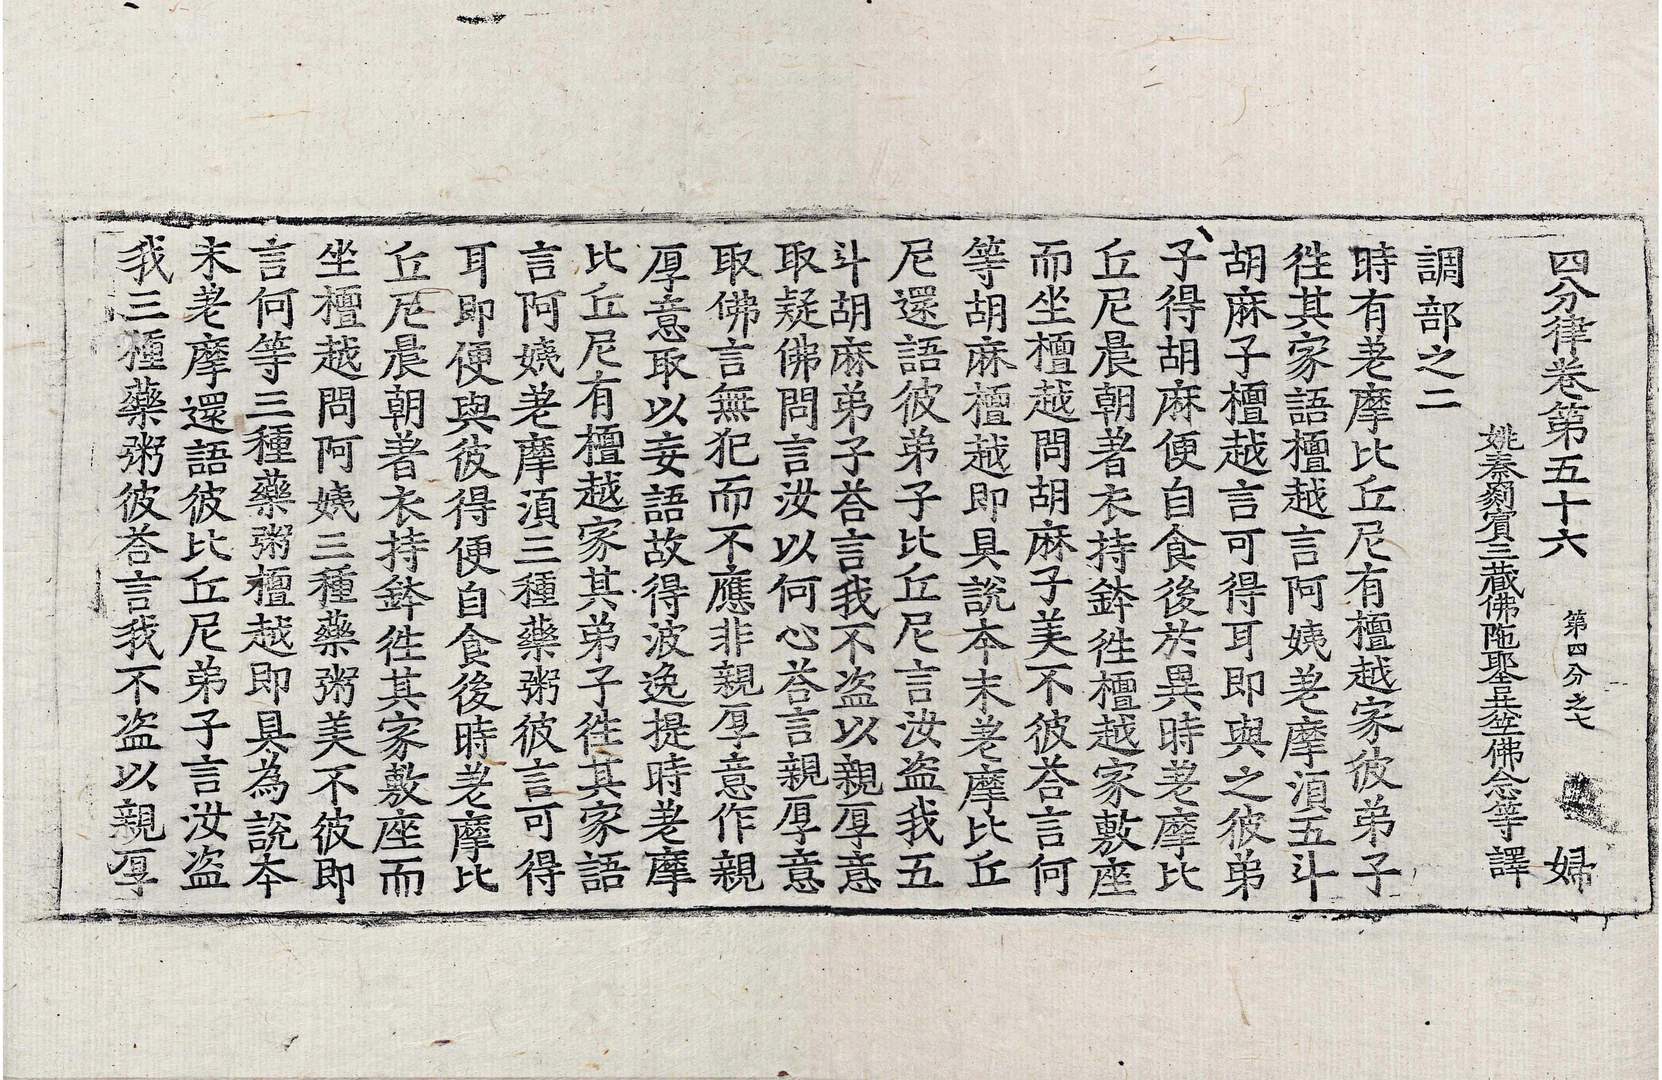 四分律卷第五十六 第四分之七 婦
姚秦罽賓三藏佛陁耶舍共竺佛念等譯
調部之二
時有耂摩比丘尼有檀越家彼弟子
徃其家語檀越言阿姨耂摩湏五斗
胡麻子檀越言可得耳即與之彼弟
子得胡麻便自食後於異時耂摩比
丘尼晨朝著衣持鉢徃檀越家敷座
而坐檀越問胡麻子美不彼荅言何
等胡麻檀越即具說本末耂摩比丘
尼還語彼弟子比丘尼言汝盗我五
斗胡麻弟子荅言我不盗以親厚意
取疑佛問言汝以何心荅言親厚意
取佛言無犯而不應非親厚意作親
厚意取以妄語故得波逸提時耂摩
比丘尼有檀越家其弟子徃其家語
言阿姨耂摩湏三種藥粥彼言可得
耳即便與彼得便自食後時耂摩比
丘尼晨朝著衣持鉢徃其家敷座而
坐檀越問阿姨三種藥粥美不彼即
言何等三種藥粥檀越即具為說本
末耂摩還語彼比丘尼弟子言汝盗
我三種藥粥彼荅言我不盗以親厚